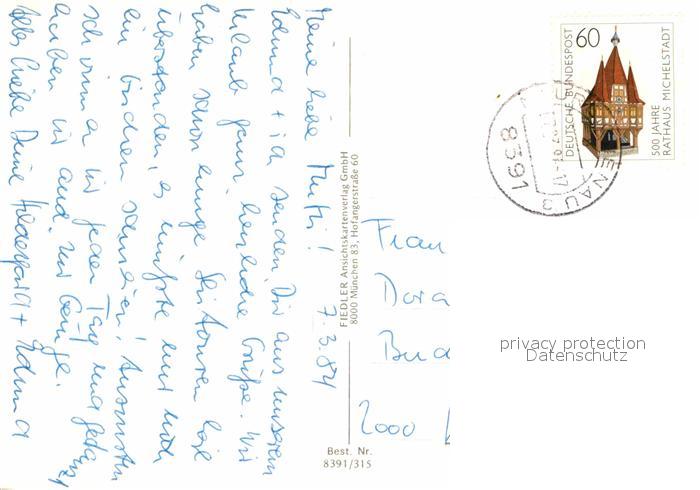 Meine liebe Mutti! 7.3.84
Edmund + ich senden Dir aus unserem
Urlaub ganz herzliche Grüße. Wir
haben schon einige Skitouren
überstanden, es müßte nur noch
ein bischen schneien! Ansonsten
sch wir jeden Tag
haben wir auch zur Genüge.
Alles Liebe Deine Hildegard + Edmund
FIEDLER Ansichtskartenverlag GmbH
8000 München 83, Hofangerstraße 60
Best. Nr.
8391/315
Frau
Dora
2000
DEUTSCHE BUNDESPOST
60
500 JAHRE
RATHAUS MICHELSTADT
8391
ENAU 3
privacy protection
Datenschutz